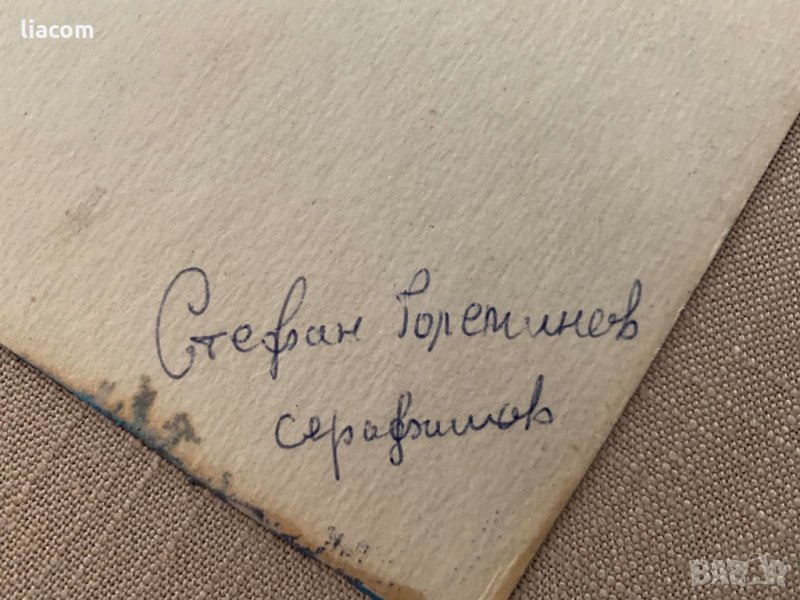 liacom
Стефан Големинов
серафимов
BAZAR